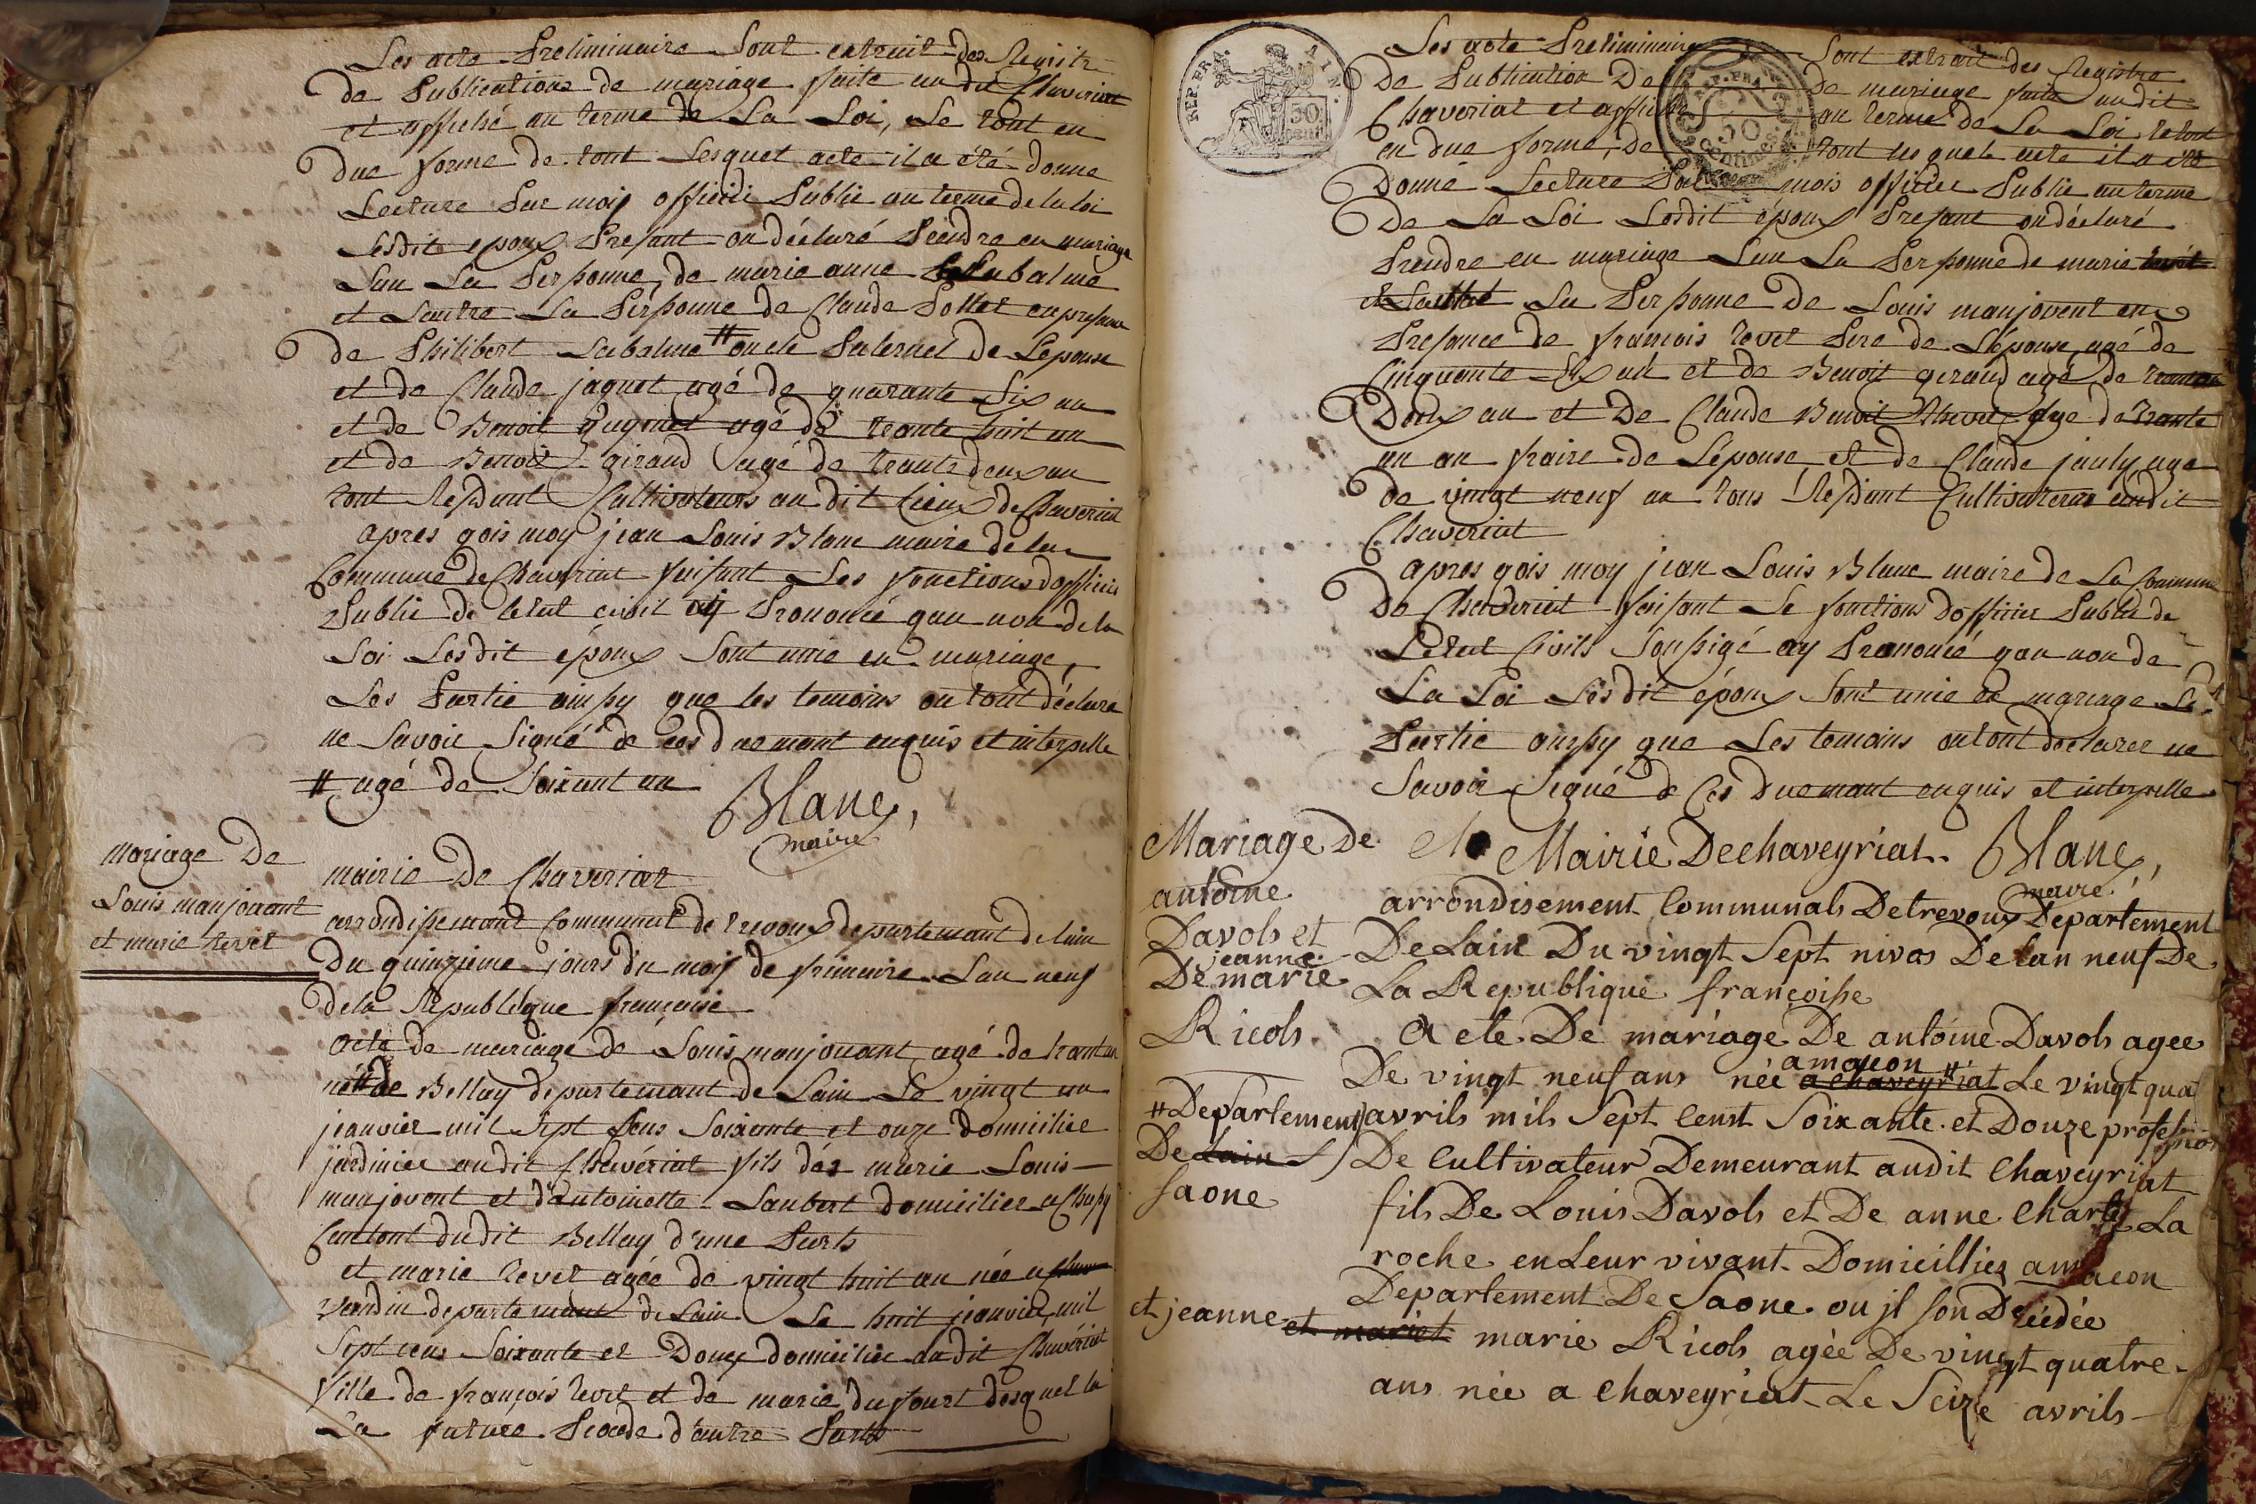 Les acte Preliminaire Sont extrait des Registr
de Publications de mariage faite au dit Chaveriat
et affiché au terme de La Loi, Le tout en
due forme de tout Lesquel acte il a été donne
Lecture Par moy officié Public au terme de la loi
Lesdit epoux Presant on déclaré Prendre en mariage
Lun La Personne de marie anne Labalme
et Lautre La Personne de Claude Pollet en presance
de Philibert Labalme # oncle Paternel de Lepouse
et de Claude jaquet agé de quarante Six an
et de Benoit gugnet agé de trante huit an
et de Benoit giraud agé de trante deux an
tout Residant Cultivateurs au dit Lieux de Chaveriat
apres qois moy jean Louis Blanc maire de la
Commune de Chaveriat faisant Les fonctions dofficié
Public de letat civil ay Prononcé quau non de la
Loi Lesdit époux Sont unie en mariage,
Les Partie ainsy que les temoins on tout déclaré
ne Savoir Signé de ces duemant enquis et interpellé
# agé de Soixant an
Blanc,
maire
mariage de
Louis manjouant
et marie revet
mairie de Chaveriat
arrondissemant Communal de trevoux departemant de lain
Du quinzieme jours du mois de frimaire Lan neuf
de la Republique françoise
acte de mariage de Louis manjouant, agé de trant an
né de Bellay departemant de Lain Le vingt un
jeanvier mil Sept Sens Soixante et onze domicilié
jardinier audit Chavériat fils des marie Louis
manjovent et d'antoinette Laubert domicilier a Chassy
Cantont dudit Bellay d'une Parts
et marie revet agée de vingt huit an née a
vandin departemant de Lain Le huit jeanvier mil
Sept cens Soixante et Douze domiciliée audit Chavériat
fille de françois revet et de marie dufourt desquel la
La future Procede d'autre Parts
REP. FRA.
30
cent.
REP. FRA.
50
centimes
Les acte Preliminaire Sont extrait des Registre
De Publication De De mariage faite audit
Chaveriat et affiché au terme de La Loi le tout
en due forme, de tout lesquels acte il a été
Donné Lecture Par mois officier Public au terme
De La Loi Lesdit époux Presant on déclaré
Prendre en mariage Lun La Personne de marie revet
et Lautre La Personne de Louis manjovent en
Presance de françois revet Pere de L'épouse, agé de
Cinquante Six an et de Benoit geraud agé de trante
Deux an et De Claude Benoit Revet Age de trante
un an fraire de Lépouse et de Claude jauly age
de vingt neuf an tous Residant Cultivateur audit
Chaveriat
apres qois moy jean Louis Blanc maire de La Commune
De Chaveriat faisant Le fonctions dofficier Public de
Letat Civils Sousigé ay Prononcé quau non de
La Loi Lesdit époux Sont unie en mariage Les
Partie ainsy que Les temoins on tout déclarer ne
Savoir Signé de Ces duemant enquis et interpellé
Blanc,
maire
Mariage De
antoine
Davols et
jeanne
De marie
Ricols.
Mairie Dechaveyriat.
arrondisement Communals Detrevoux Departement
De Lain Du vingt Sept nivos De Lan neuf De
La Republique françoisse
Acte De mariage De antoine Davols agee
De vingt neuf ans née amacon # a chaveyriat Le vingt qua
avrils mils Sept Censt Soixante et Douze profession
# Departement
De Lain
Saone
De Cultivateur Demeurant audit Chaveyriat
fils De Louis Davols et De anne Charle La
roche en Leur vivant Domicillies amacon
Departement De Saone ou jl son Décédée
et jeanne et mariet marie Ricols agée De vingt quatre
ans née a Chaveyriat Le Seize avrils